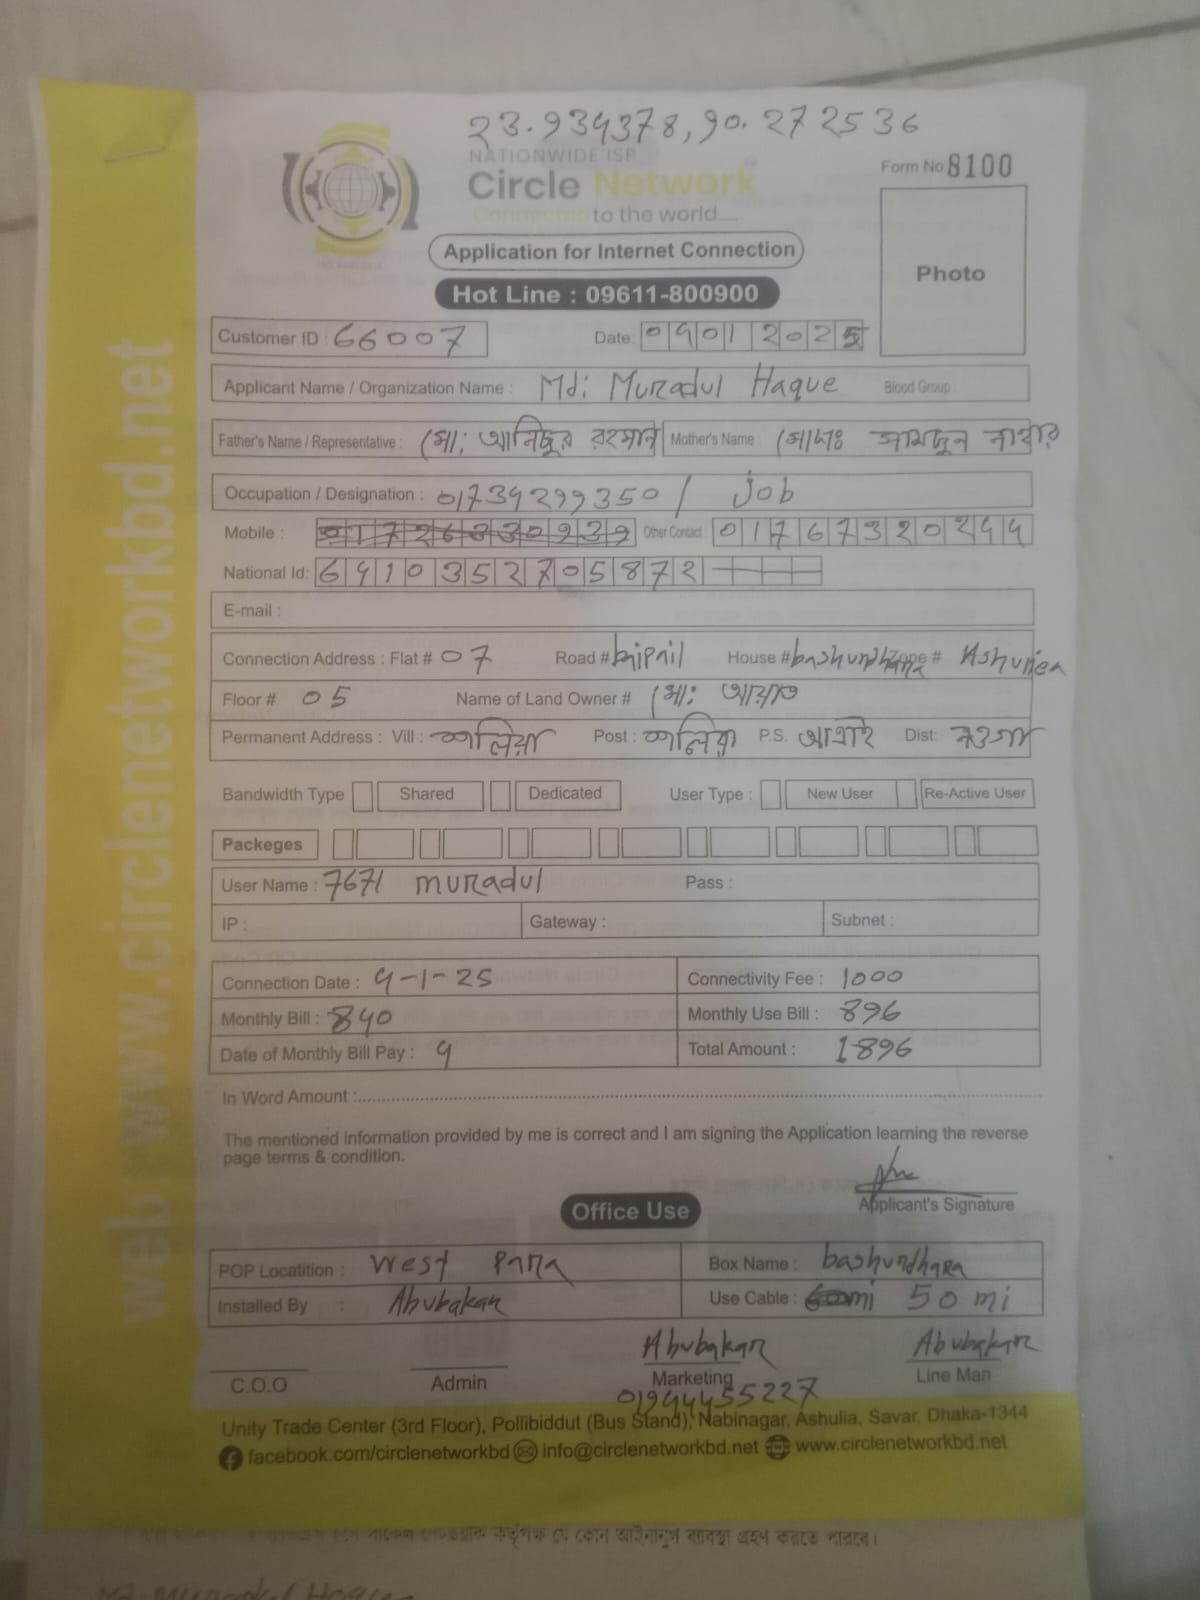 23.934378, 90.272536
NATIONWIDE ISP
Circle Network
Connected to the world....
Form No 8100
Photo
Application for Internet Connection
Hot Line : 09611-800900
Customer ID : 66007 Date: 09012025
Applicant Name / Organization Name : Md: Muradul Haque Blood Group
Father's Name / Representative : মো: আনিছুর রহমান Mother's Name : মোছাঃ নাহার
Occupation / Designation : 01734299350 / Job
Mobile : 01726330939 Other Contact 01767320244
National Id: 6410352705872
E-mail :
Connection Address : Flat # 07 Road # baipail House # bashundhara Zone # Ashuliea
Floor # 05 Name of Land Owner # মো:
Permanent Address : Vill : Post : P.S. আত্রাই Dist: নওগাঁ
Bandwidth Type Shared Dedicated User Type : New User Re-Active User
Packeges
User Name : 7671 muradul Pass :
IP : Gateway : Subnet :
Connection Date : 9-1-25 Connectivity Fee : 1000
Monthly Bill : 840 Monthly Use Bill : 896
Date of Monthly Bill Pay : 9 Total Amount : 1896
In Word Amount :
The mentioned information provided by me is correct and I am signing the Application learning the reverse
page terms & condition.
Applicant's Signature
Office Use
POP Locatition : West Para Box Name : bashundhara
Installed By : Abubakar Use Cable : 50 mi
Abubakar Abubakar
C.O.O Admin Marketing Line Man
01944455227
Unity Trade Center (3rd Floor), Pollibiddut (Bus Stand), Nabinagar, Ashulia, Savar, Dhaka-1344
facebook.com/circlenetworkbd info@circlenetworkbd.net www.circlenetworkbd.net
web: www.circlenetworkbd.net
কর্তৃপক্ষ যে কোন আইনানুগ ব্যবস্থা গ্রহণ করতে পারবে।